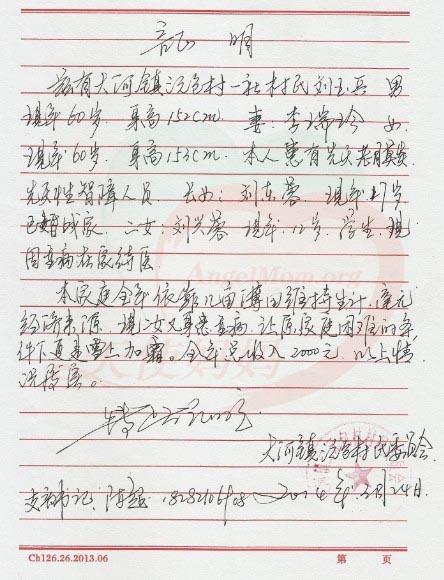 证 明
兹有大河镇沉宝村一社村民刘玉兵 男
现年60岁. 身高152cm. 妻:李瑞珍 女
现年60岁. 身高153cm. 本人患有先天
先天性智障人员. 长女:刘东蓉. 现年17岁
已婚成家. 二女:刘兴蓉 现年.12岁. 学生.现
因患病在家待医
本家庭全年依靠几亩薄田维持生计,
经济来源. 现次女又身患重病.让原家庭困难的条
件下更是雪上加霜。全年总收入2000元.以上情
况属实。
大河镇沉宝村民委员会
支部书记: 陈 2014年 月24日.
AngelMom.org
天使妈妈
Ch126.26.2013.06
第 页